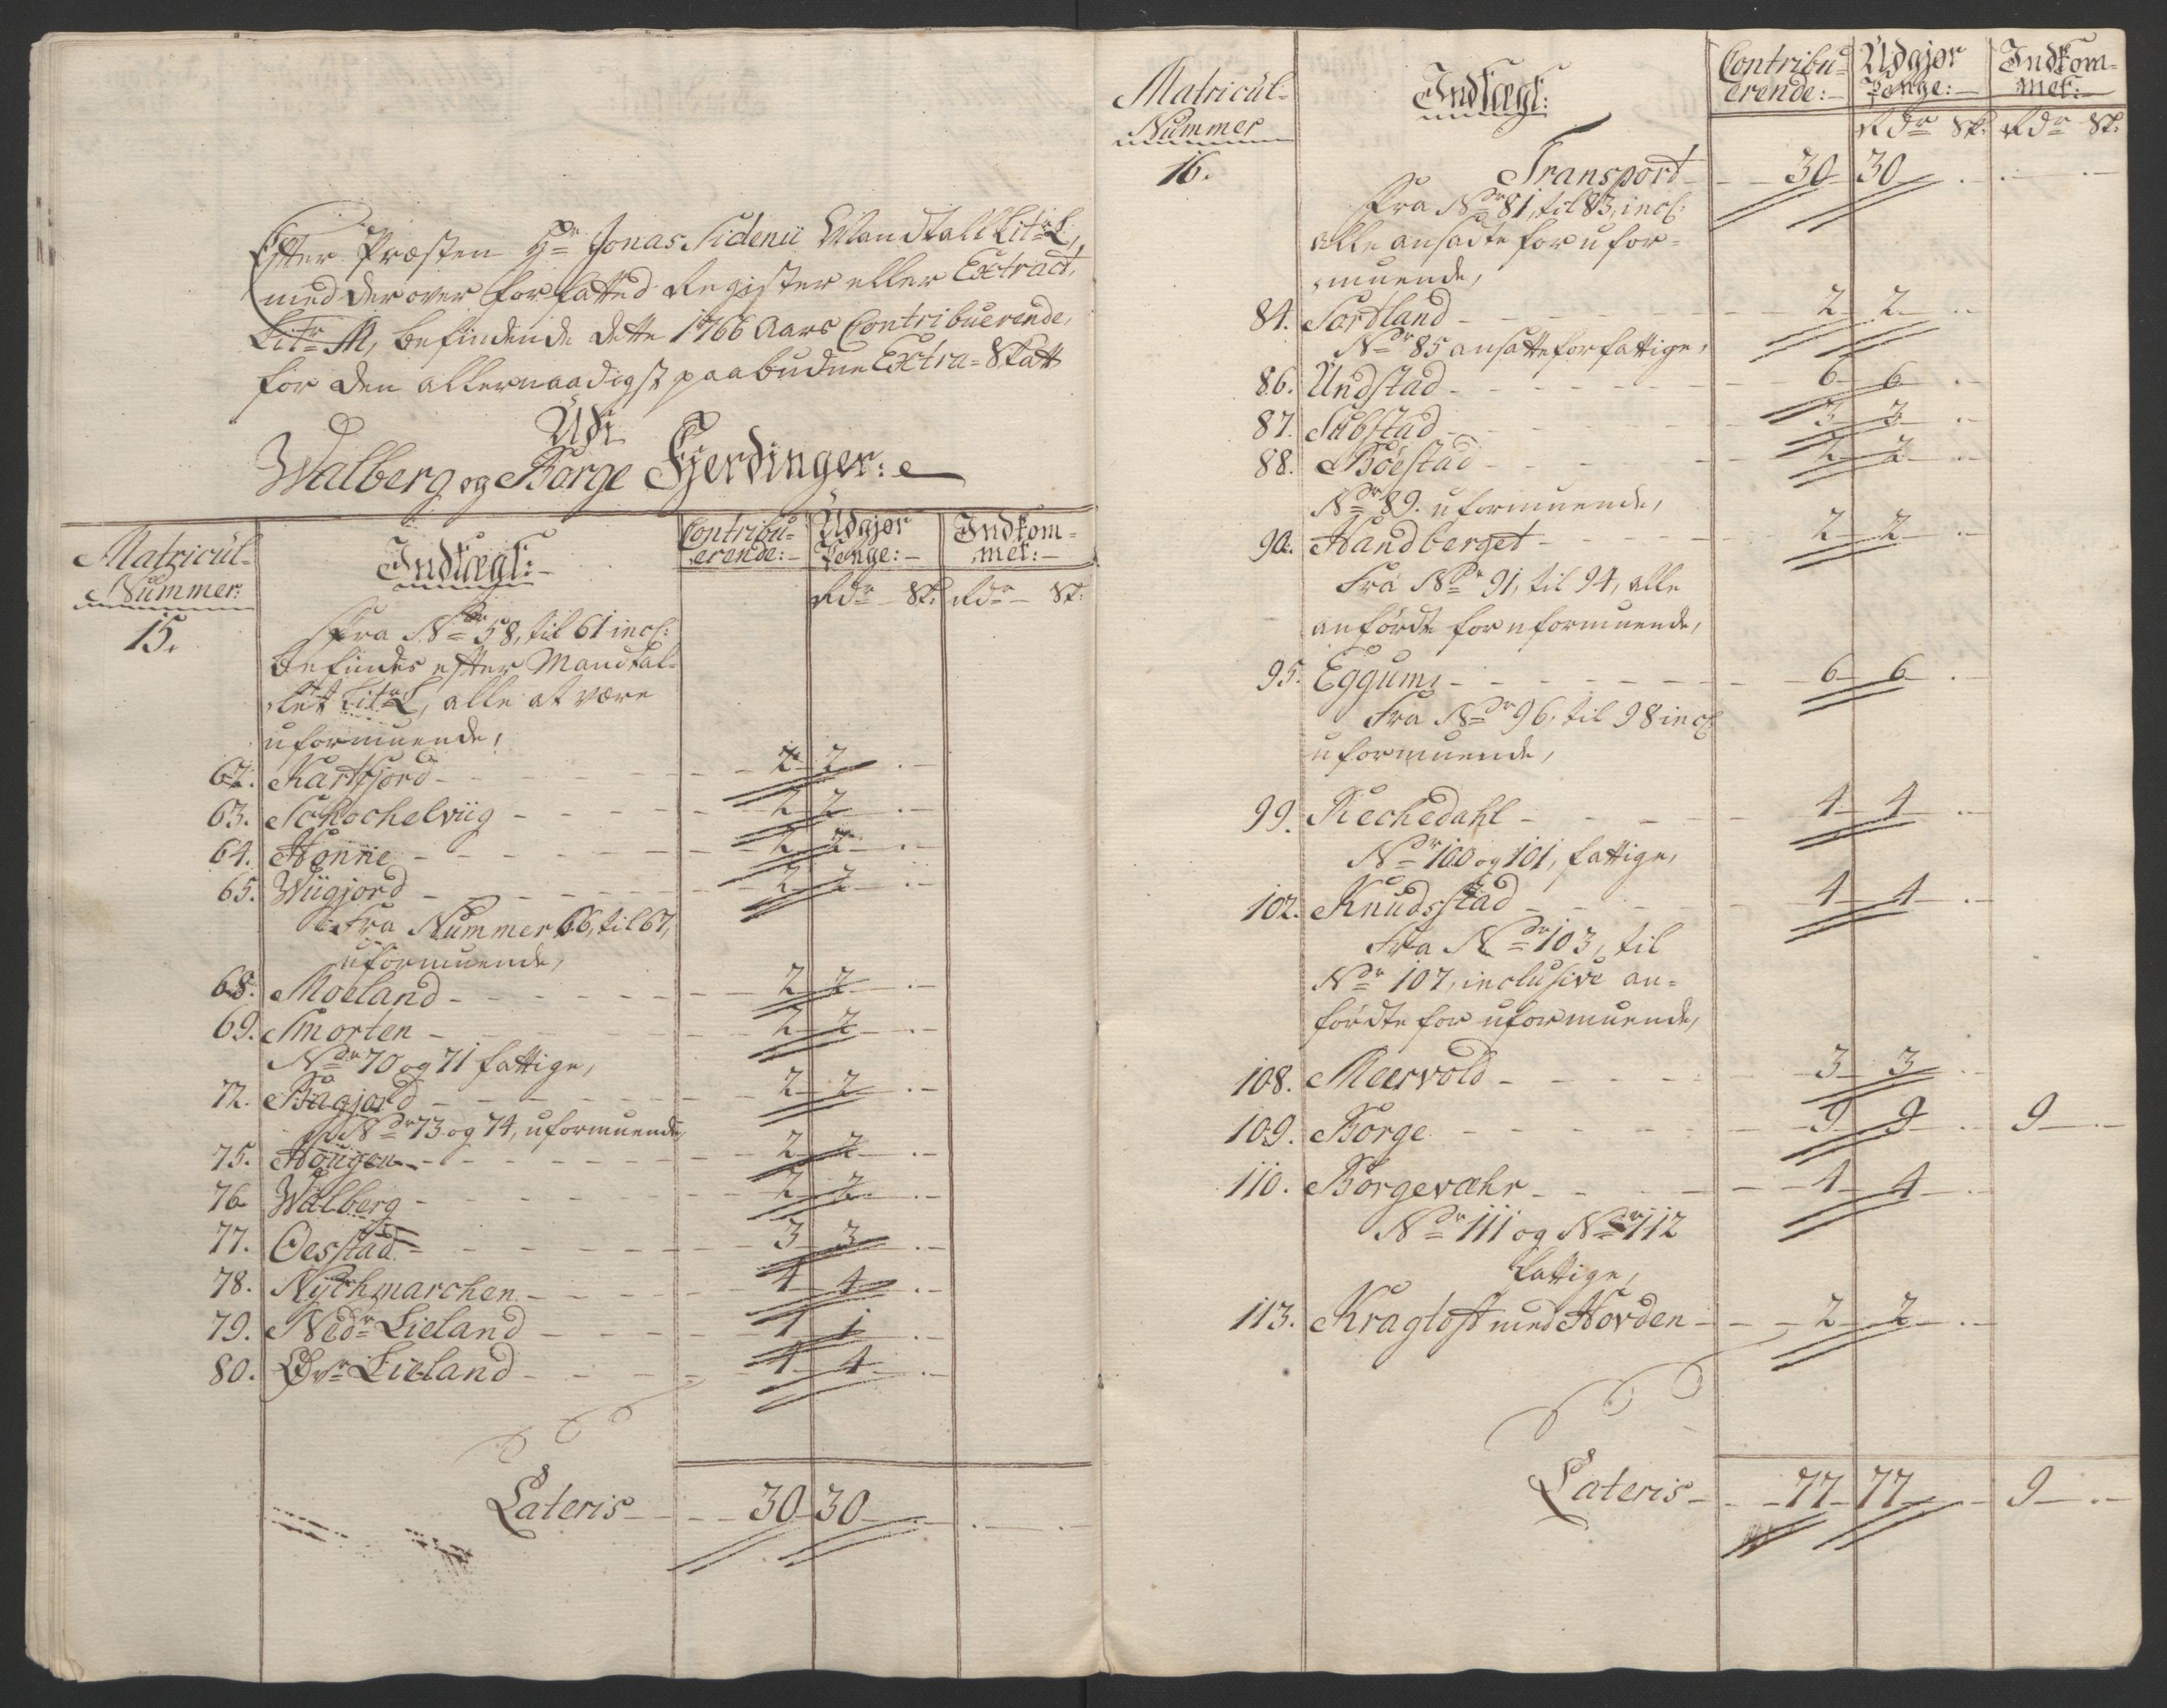 Efter Præsten Hr Jonas Sidenii Mandtall Litr L,
med der over forfatted Register eller Extract
Litr M, befindende dette 1766 Aars Contribuerende,
for den allernaadigst paabudne Extra=Skatt
Udi
Walberg og Borge Fjerdinger:
Matricul- Indtægt: Contribu- Udgjør Indkom-
Nummer: erende:- Penge:- met:-
Rdr Sk: Rdr Sk:
15. Fra Ndr 58, til 61 incl:
befindes efter Mandtal-
let Litr L, alle at være
uformuende,
62. Kartfjord - 2 2 . -
63. Schochelviig - 2 2 . -
64. Hønne - 2 2 . -
65. Wiigjord - 2 2 . -
Fra Nummer 66, til 67,
uformuende,
68. Moeland - 2 2 . -
69. Smorten - 2 2 . -
Ndr 70 og 71 fattige,
72. Bagjord - 2 2 . -
Ndr 73 og 74, uformuende,
75. Hougen - 2 2 . -
76. Walberg - 2 2 . -
77. Oesstad - 3 3 . -
78. Nychmarchen - 4 4 . -
79. Nedr Lieland - 1 1 . -
80. Øvr Lieland - 4 4 . -
Lateris - 30 30 . - . -
Matricul- Indtægt: Contribu- Udgjør Indkom-
Nummer erende:- Penge:- met:-
Rdr Sk: Rdr Sk:
16. Transport - 30 30 . . . -
Fra Ndr 81, til 83, incl:
alle ansadte for ufor=
muende,
84. Sortland - 2 2 . -
Ndr 85 ansatte for fattige,
86. Undstad - 6 6 . -
87. Sabstad - 3 3 . -
88. Bøestad - 2 2 . -
Ndr 89. uformuende,
90. Handberget - 2 2 . -
Fra Ndr 91, til 94, alle
anførdte for uformuende,
95. Eggum - 6 6 . -
Fra Ndr 96, til 98 incl:
uformuende,
99. Rechedahl - 4 4 . -
Ndr 100 og 101, fattige,
102. Knudsstad - 4 4 . -
Fra Ndr 103, til
Ndr 107, inclusive an=
førdte for uformuende,
108. Meervold - 3 3 . -
109. Borge - 9 9 . . 9 - . -
110. Borgevæhr - 4 4 . -
Ndr 111 og Ndr 112
fattige,
113. Kragtoft med Hovden - 2 2 . -
Lateris - 77 77 . - 9 - . -